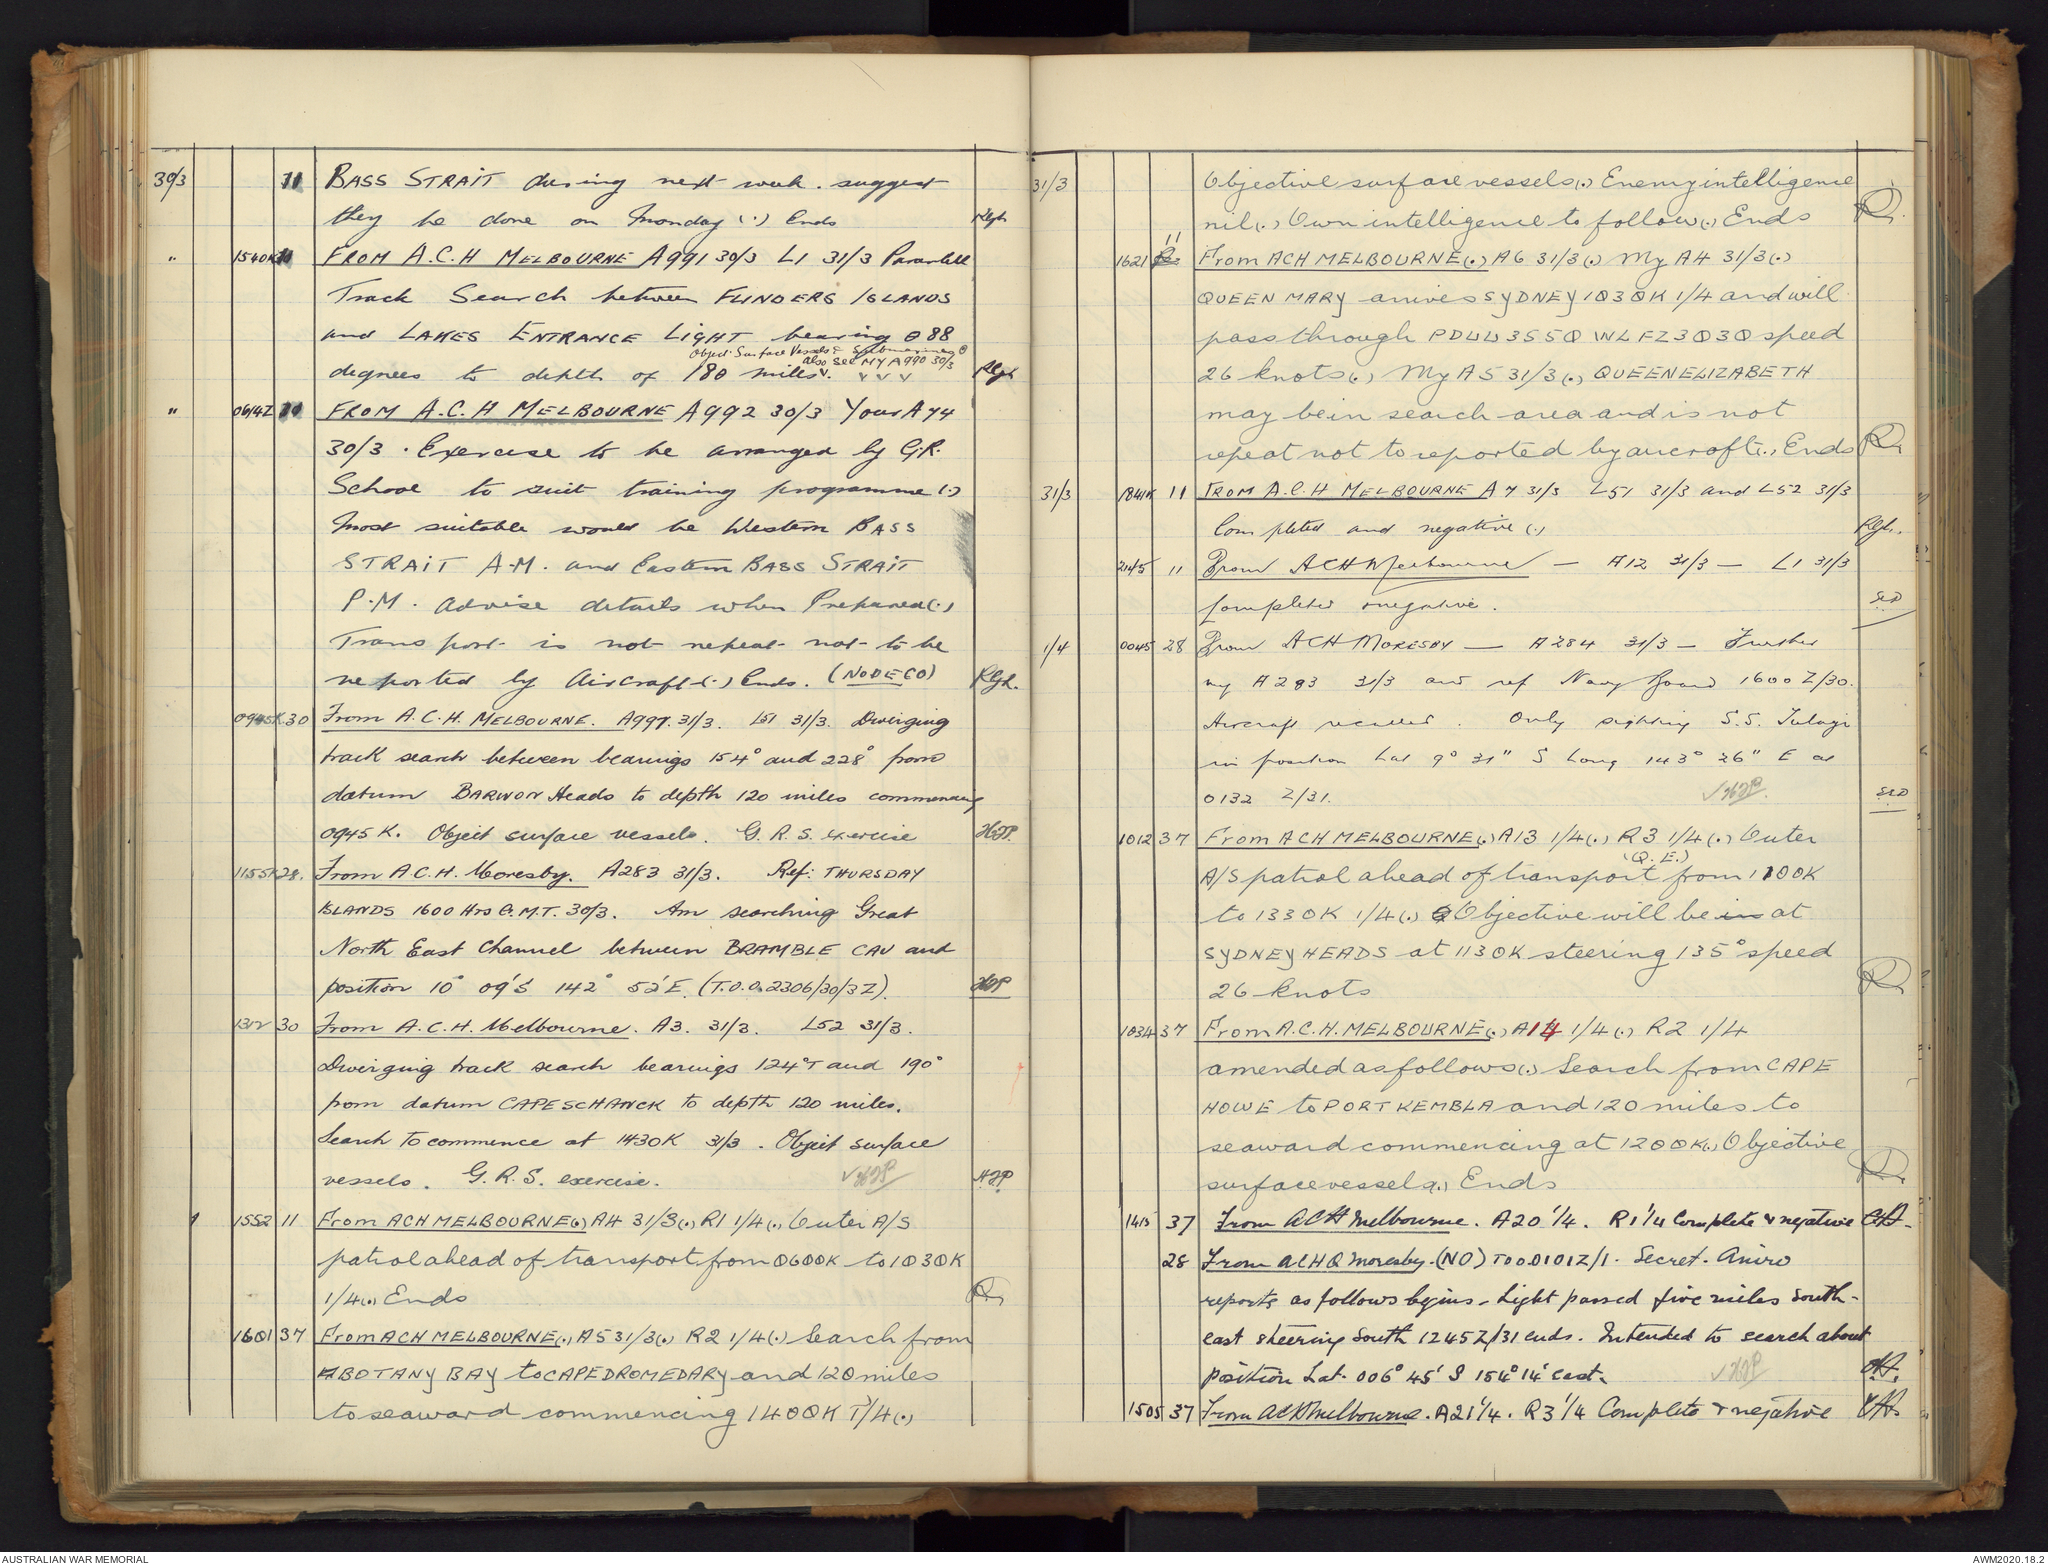 30/3 11 BASS STRAIT during next week. suggest
they be done on Monday (.) Ends Rgh.
" 1540K 11 FROM A.C.H MELBOURNE A991 30/3 L1 31/3 Paralell
Track Search between FLINDERS ISLANDS
and LAKES ENTRANCE LIGHT bearing 088
Object Surface Vessels & Submarines
also see MY A990 30/3
degrees to depth of 180 miles. Rgh
" 0614Z FROM A.C.H MELBOURNE A992 30/3 Your A74
30/3 . Exercise to be arranged by G.R.
School to suit training programme (.)
Most suitable would be Western BASS
STRAIT A.M. and Eastern BASS STRAIT
P.M. Advise details when Prepared (.)
Transport is not repeat not to be
reported by Aircraft (.) Ends. (NODECO) Rgh.
0945K 30 From A.C.H. MELBOURNE. A997. 31/3. L51 31/3. Diverging
track search between bearings 154° and 228° from
datum BARWON Heads to depth 120 miles commencing
0945K. Object surface vessels. G.R.S. exercise HJP.
1155K 28. From A.C.H. Moresby. A283 31/3. Ref: THURSDAY
ISLANDS 1600 Hrs G.M.T. 30/3. Am searching Great
North East Channel between BRAMBLE CAY and
position 10° 09'S 142° 52'E. (T.O.O. 2306/30/3Z). HJP
1312 30 From A.C.H. Melbourne. A3. 31/3. L52 31/3.
Diverging track search bearings 124°T and 190°
from datum CAPE SCHANCK to depth 120 miles.
Search to commence at 1430K 31/3. Object surface
vessels. G.R.S. exercise. ✓HJP HJP
1552 11 From ACH MELBOURNE(.) A4 31/3(.) R1 1/4(.) Outer A/S
patrol ahead of transport from 0600K to 1030K
1/4(.) Ends
1601 37 From ACH MELBOURNE(.) A5 31/3(.) R2 1/4(.) Search from
BOTANY BAY to CAPE DROMEDARY and 120 miles
to seaward commencing 1400K 1/4(.)
31/3 Objective surface vessels(.) Enemy intelligence
nil(.) Own intelligence to follow(.) Ends
1621 11 From ACH MELBOURNE(.) A6 31/3(.) My A4 31/3(.)
QUEEN MARY arrives SYDNEY 1030K 1/4 and will
pass through PDUU3550 WLFZ3030 speed
26 knots(.) My A5 31/3(.) QUEEN ELIZABETH
may be in search area and is not
repeat not to reported by aircraft(.) Ends
31/3 1841K 11 FROM A.C.H MELBOURNE A7 31/3 L51 31/3 and L52 31/3
Completed and negative (.) Rgh.
2145 11 From ACH Melbourne — A12 31/3 — L1 31/3
Completed & negative.
1/4 0045 28 From ACH MORESBY — A284 31/3 — Further
my A283 31/3 and ref Navy Board 1600 Z/30.
Aircraft recalled. Only sighting S.S. Tulagi
in position Lat 9° 31" S Long 143° 26" E at
0132 Z/31. ✓HJP.
1012 37 From ACH MELBOURNE(.) A13 1/4(.) R3 1/4(.) Outer
(Q.E.)
A/S patrol ahead of transport from 1100K
to 1330K 1/4(.) Objective will be in at
SYDNEY HEADS at 1130K steering 135° speed
26 knots
1034 37 From A.C.H. MELBOURNE(.) A14 1/4(.) R2 1/4
amended as follows(.) Search from CAPE
HOWE to PORT KEMBLA and 120 miles to
seaward commencing at 1200K(.) Objective
surface vessels(.) Ends
1415 37 From ACH Melbourne. A20 1/4. R1 1/4 Complete & negative
28 From ACHQ Moresby. (NO) TOO.0101Z/1. Secret. Aniro
reports as follows begins - Light passed five miles South-
east steering South 1245Z/31 ends. Intended to search about
position Lat. 006° 45' S 154° 14' east. ✓HJP
1505 37 From ACH Melbourne. A21 1/4. R3 1/4 Complete & negative
AUSTRALIAN WAR MEMORIAL
AWM2020.18.2